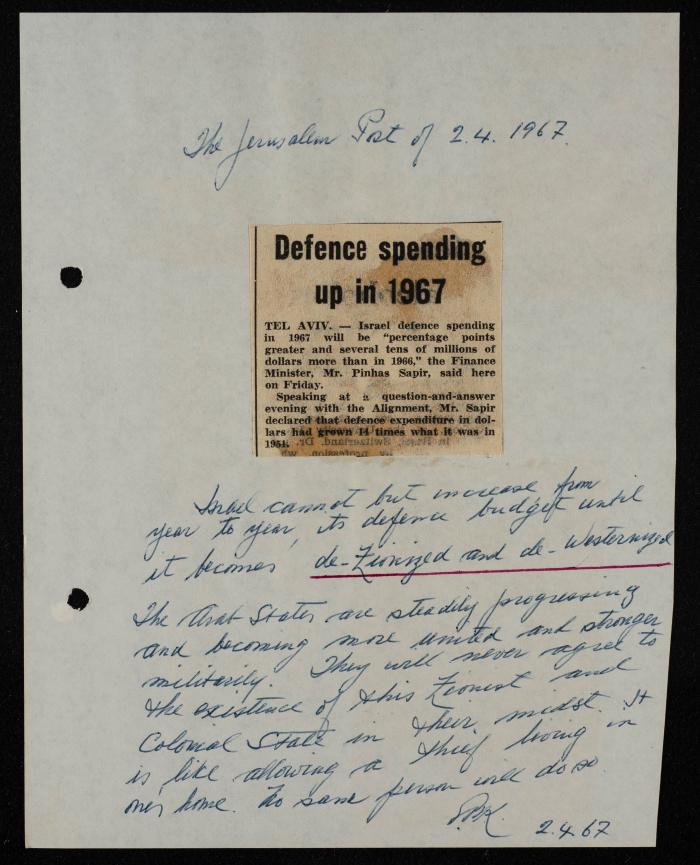 The Jerusalem Post of 2.4.1967.
Defence spending
up in 1967
TEL AVIV. — Israel defence spending
in 1967 will be "percentage points
greater and several tens of millions of
dollars more than in 1966," the Finance
Minister, Mr. Pinhas Sapir, said here
on Friday.
Speaking at a question-and-answer
evening with the Alignment, Mr. Sapir
declared that defence expenditure in dol-
lars had grown 14 times what it was in
1951.
Israel cannot but increase from
year to year, its defence budget until
it becomes de-Zionized and de-Westernized
The Arab States are steadily progressing
and becoming more united and stronger
militarily. They will never agree to
the existence of this Zionist and
Colonial State in their midst. It
is like allowing a thief living in
one's home. No sane person will do so.
2.4.67